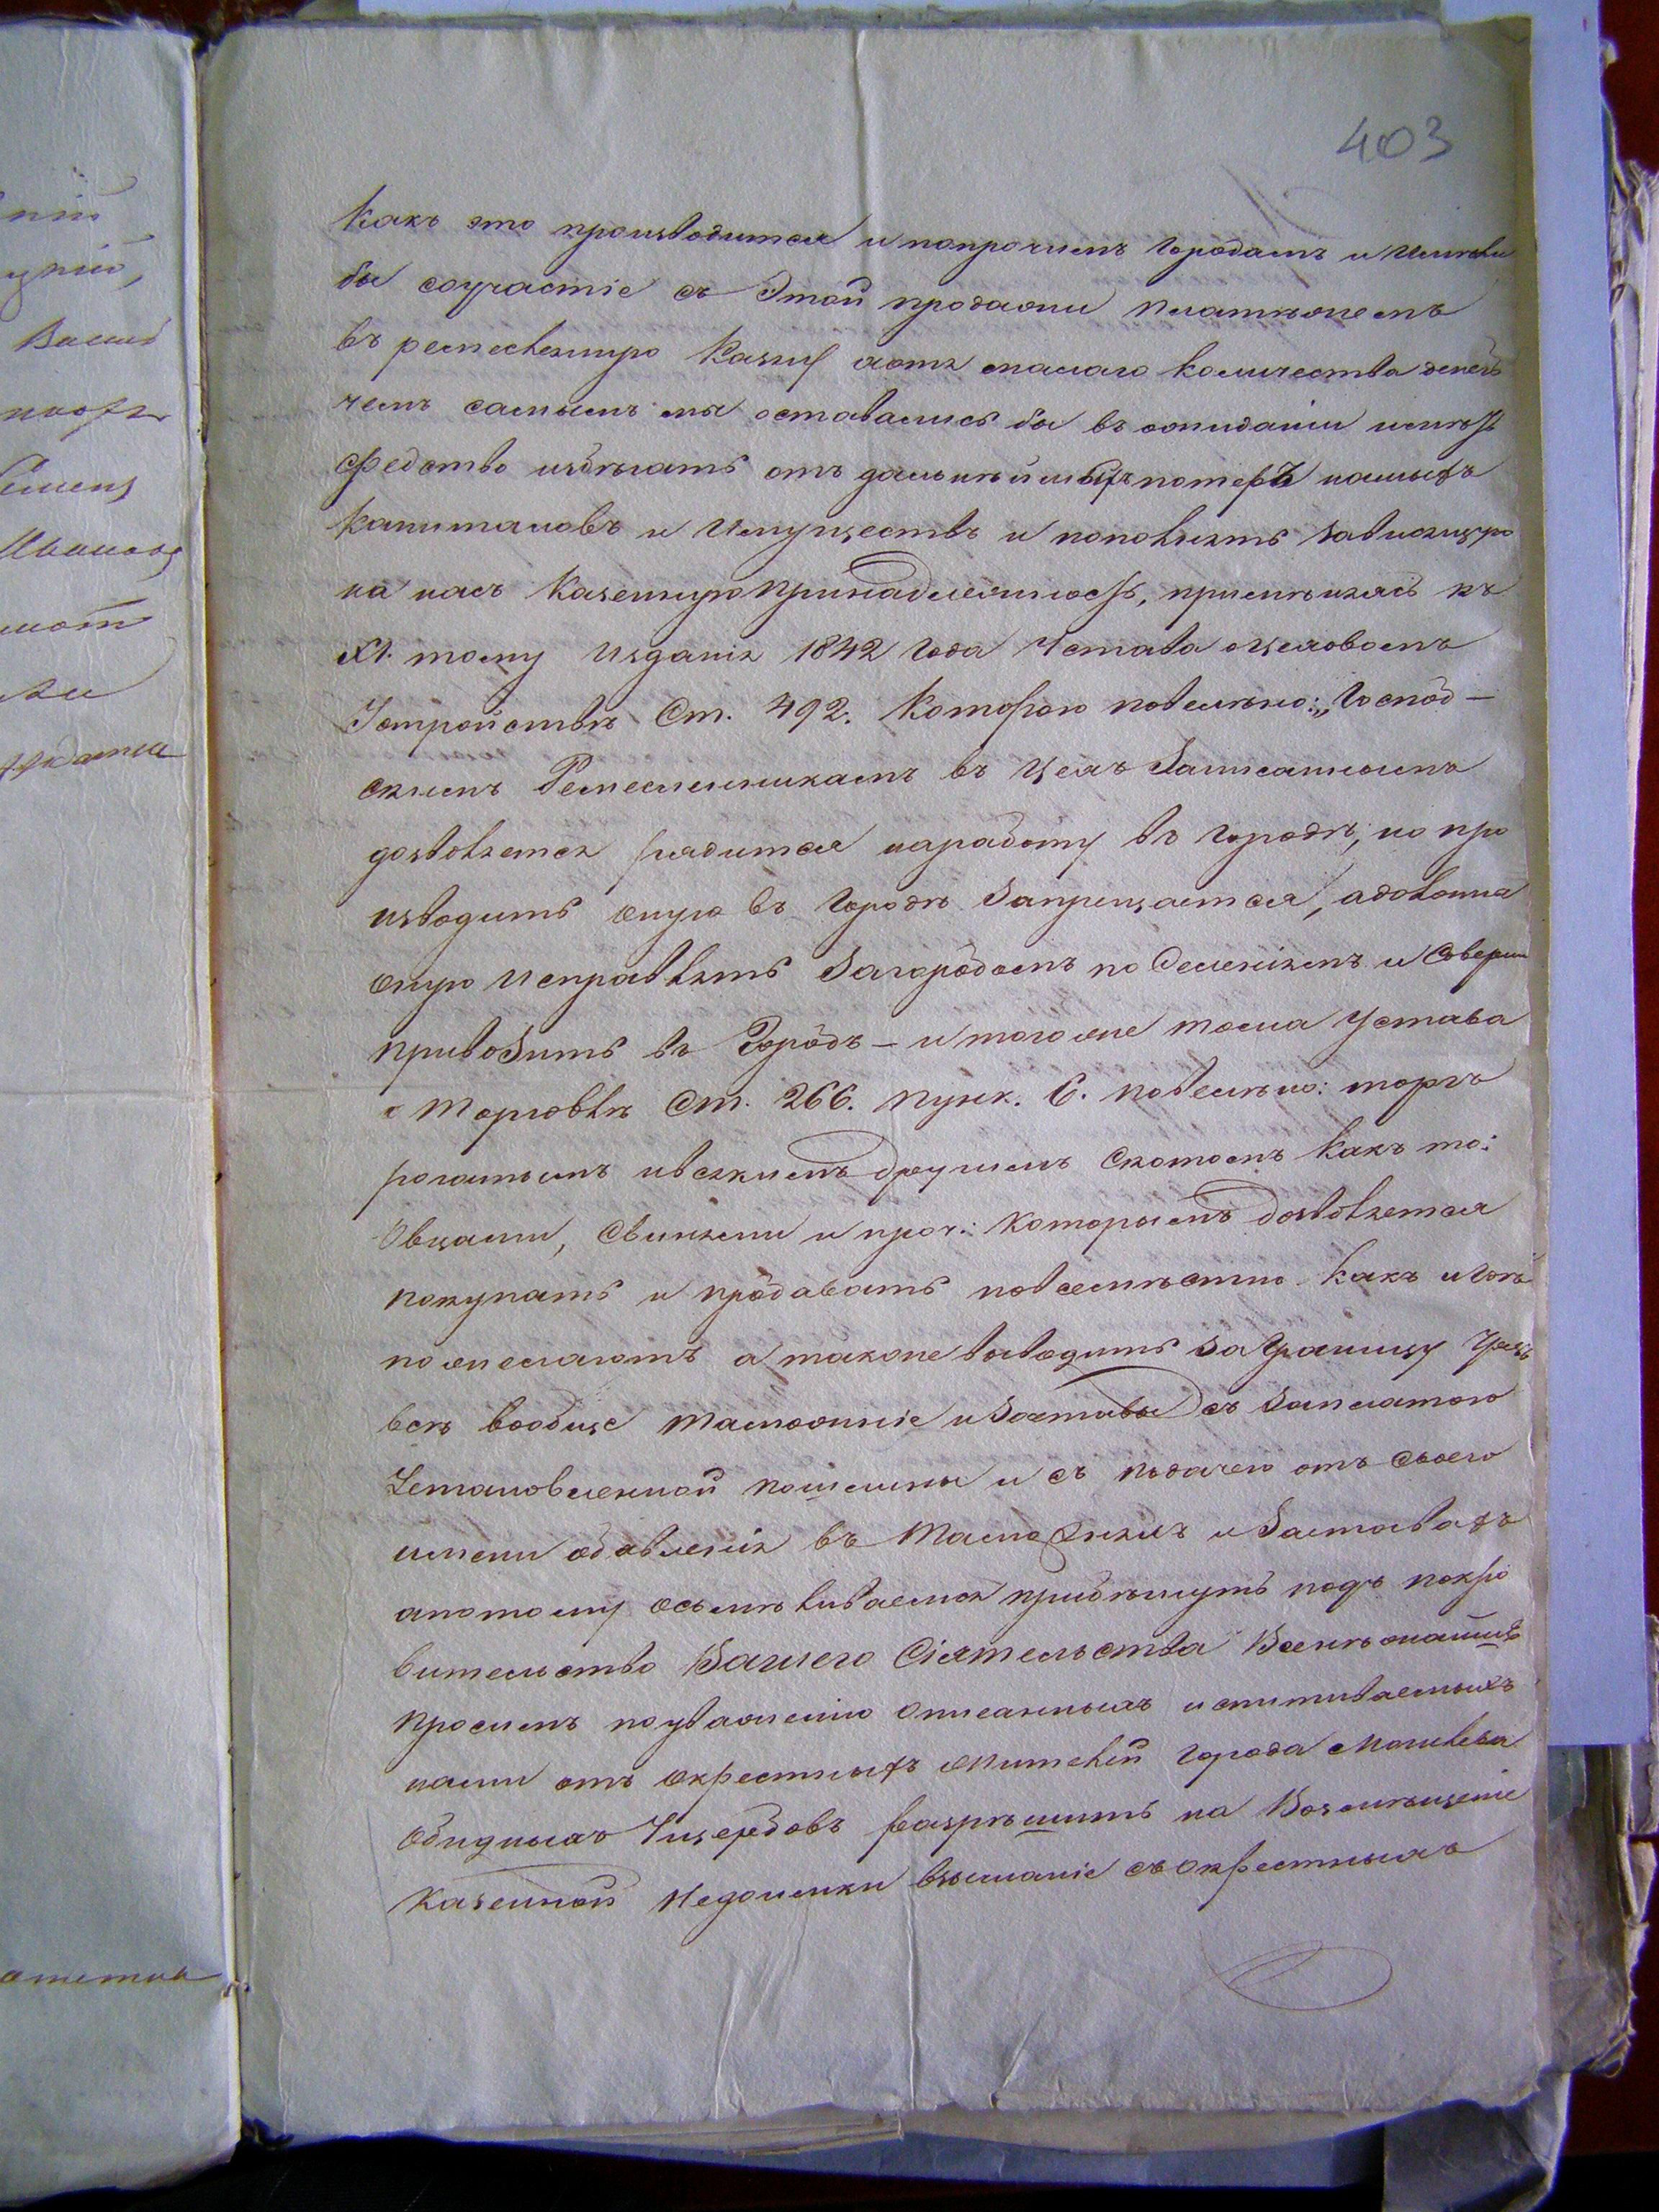 403
Какъ это производится и попрочимъ городамъ и имѣли
бы соучастіе съ этой продажи платежемъ
въ ремеслянную казну хотя малаго количества денегъ
чемъ самымъ мы оставались бы въ ожиданіи имѣть
средство избѣгать отъ дальнѣйшихъ потерь нашихъ
капиталовъ и имуществъ и пополнять зависящую
на насъ казенную принадлежность, примѣняясь къ
XI. тому изданія 1842 года Устава о цеховомъ
Устройствѣ Ст. 492. Которою повелѣно: „Господ-
скимъ Ремесленникамъ въ цехъ Записаннымъ
дозволяется рядится наработу въ городѣ, но про
изводить оную въ городѣ Запрещается, адолжна
оную исправлять Загородомъ по селеніямъ и соверш
привозить въ Городъ — и того же тома Устава
о Торговлѣ Ст. 266. пунк. 6. повелѣно: торгъ
рогатымъ ивсякимъ другимъ скотомъ какъ то:
Овцами, свиньми и проч: которымъ дозволяется
покупать и продавать повсемѣстно какъ и гдѣ
пожелаютъ а также выводить за границу чрезъ
всѣ вообще таможніе изаставы съ заплатою
Установленной пошлины и съ подачею отъ своего
имени объявленія въ таможняхъ и заставахъ
апотому осмѣливаемся прибѣгнуть подъ покро
вительство Вашего Сіятельства Всенижайше
просимъ поуваженію описанныхъ испытываемыхъ
нами отъ окрестныхъ жителей города Могилева
обидныхъ Ущербовъ разрѣшить на Возмѣщеніе
казенной Недоимки взыманіе съ окрестныхъ